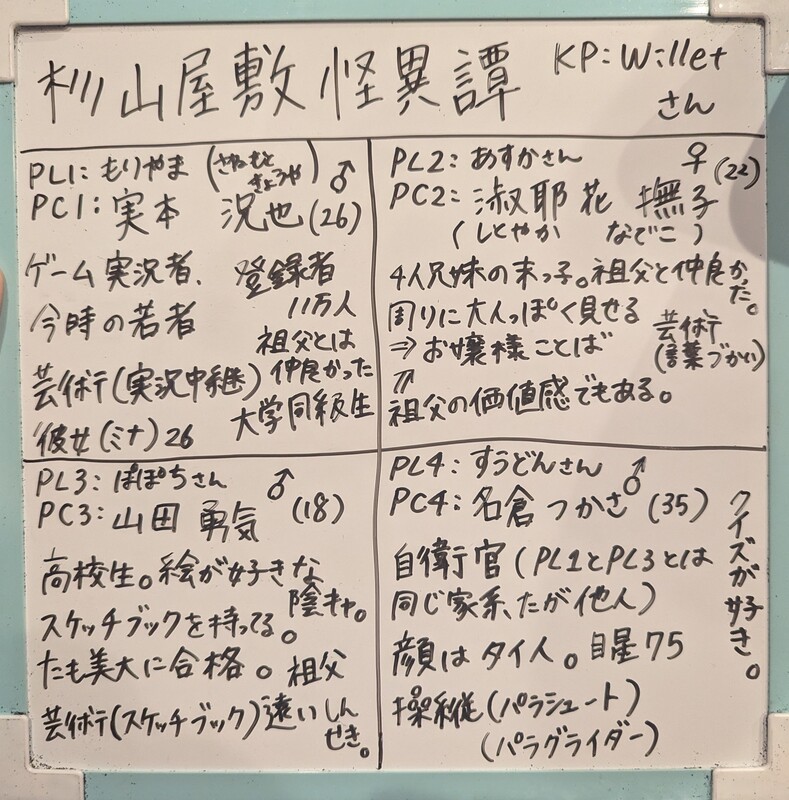 杉山屋敷怪異譚
KP:Willet
さん
PL1:もりやま(さねもと
きょうや)♂
PC1:実本 況也(26)
ゲーム実況者、登録者
11万人
今時の若者
祖父とは
仲良かった
芸術〒(実況中継)
大学同級生
彼女(ミナ)26
PL2:あすかさん ♀(22)
PC2:淑耶花 撫子
(しとやか なでこ)
4人兄妹の末っ子。祖父と仲良かった。
周りに大人っぽく見せる
⇒お嬢様ことば
芸術〒
(言葉づかい)
⇑
祖父の価値感でもある。
PL3:ぽぽちさん ♂
PC3:山田 勇気 (18)
高校生。絵が好きな
陰キャ。
スケッチブックを持ってる。
たも美大に合格。祖父
遠いしん
せき。
芸術〒(スケッチブック)
PL4:すうどんさん ♂
PC4:名倉つかさ(35)
自衛官(PL1とPL3とは
同じ家系、だが他人)
顔はタイ人。目星75
操縦(パラシュート)
(パラグライダー)
クイズが好き。